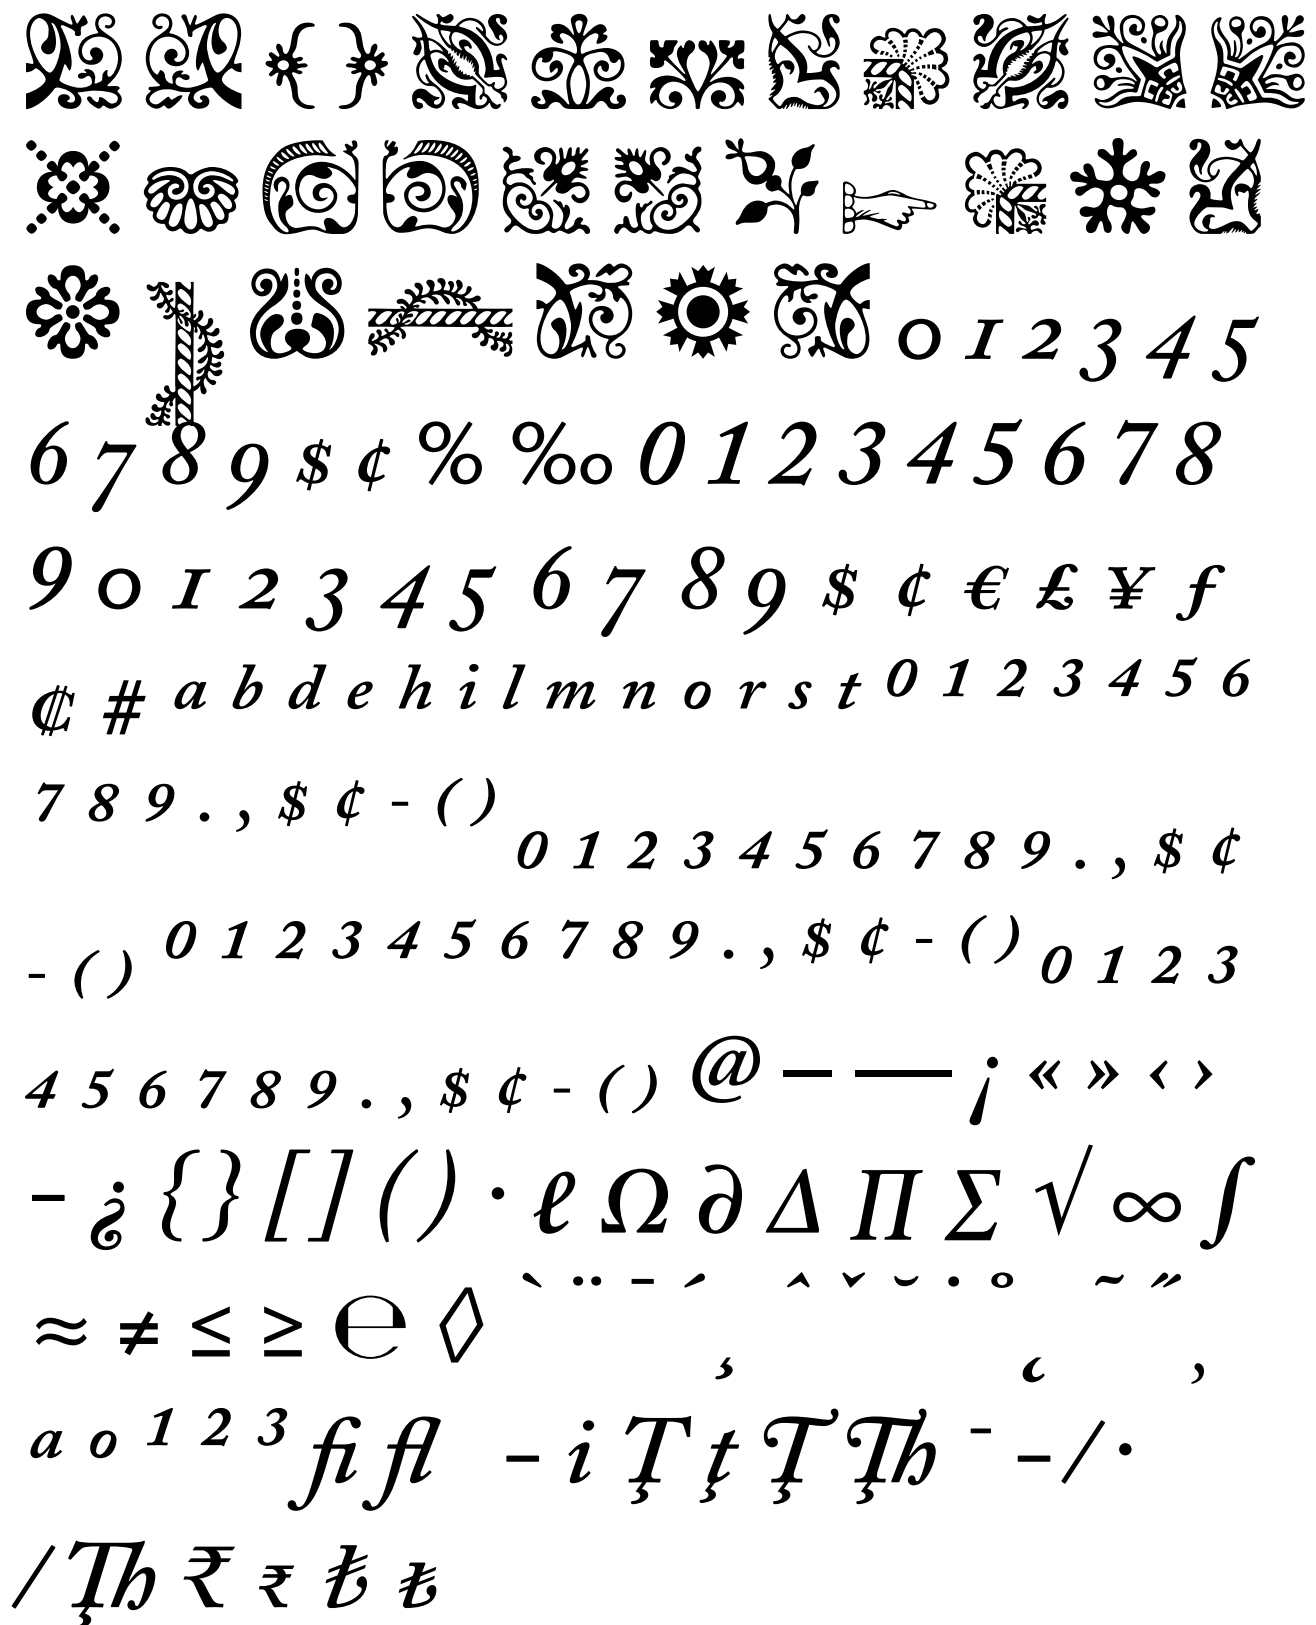 { }
☞
0 1 2 3 4 5
6 7 8 9 $ ¢ % ‰ 0 1 2 3 4 5 6 7 8
9 0 1 2 3 4 5 6 7 8 9 $ ¢ € £ ¥ ƒ
₵ # a b d e h i l m n o r s t 0 1 2 3 4 5 6
7 8 9 . , $ ¢ - ( ) 0 1 2 3 4 5 6 7 8 9 . , $ ¢
- ( ) 0 1 2 3 4 5 6 7 8 9 . , $ ¢ - ( ) 0 1 2 3
4 5 6 7 8 9 . , $ ¢ - ( ) @ – — ¡ « » ‹ ›
- ¿ { } [ ] ( ) · ℓ Ω ∂ Δ Π Σ √ ∞ ∫
≈ ≠ ≤ ≥ ℮ ◊ ` ¨ ¯ ´ ¸ ˆ ˇ ˘ ˙ ˚ ˛ ˜ ˝ ,
a o 1 2 3 fi fl - i Ţ ţ Ţ Ţh ¯ - / ·
/ Ţh ₹ ₹ ₺ ₺